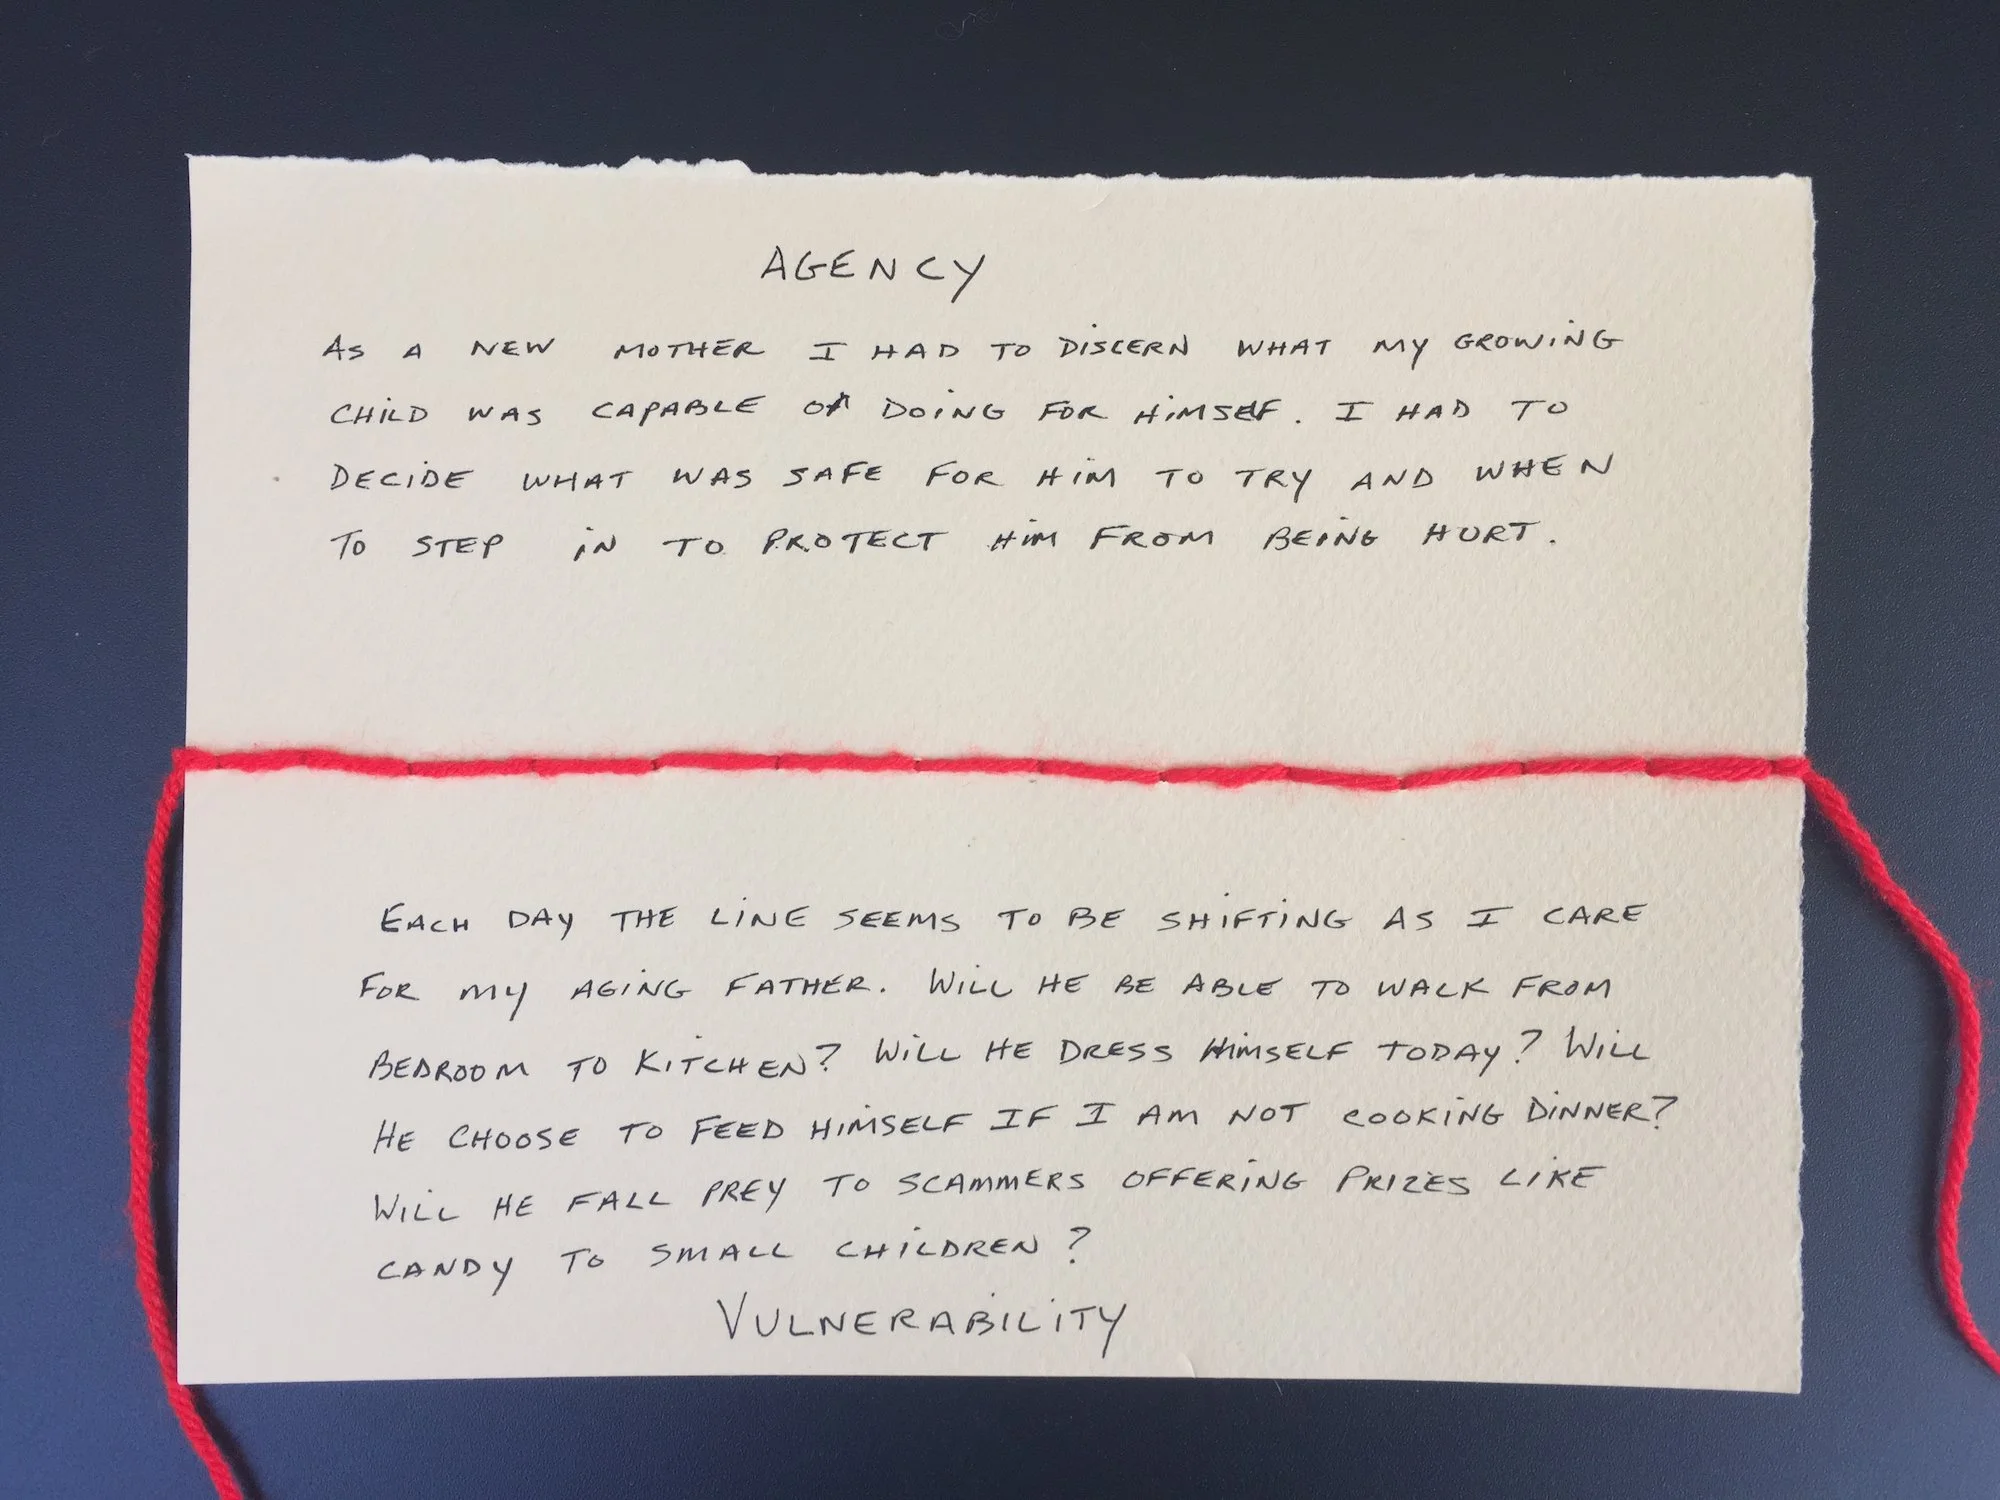 AGENCY
AS A NEW MOTHER I HAD TO DISCERN WHAT MY GROWING
CHILD WAS CAPABLE OF DOING FOR HIMSEF. I HAD TO
DECIDE WHAT WAS SAFE FOR HIM TO TRY AND WHEN
TO STEP IN TO PROTECT HIM FROM BEING HURT.
EACH DAY THE LINE SEEMS TO BE SHIFTING AS I CARE
FOR MY AGING FATHER. WILL HE BE ABLE TO WALK FROM
BEDROOM TO KITCHEN? WILL HE DRESS HIMSELF TODAY? WILL
HE CHOOSE TO FEED HIMSELF IF I AM NOT COOKING DINNER?
WILL HE FALL PREY TO SCAMMERS OFFERING PRIZES LIKE
CANDY TO SMALL CHILDREN?
VULNERABILITY